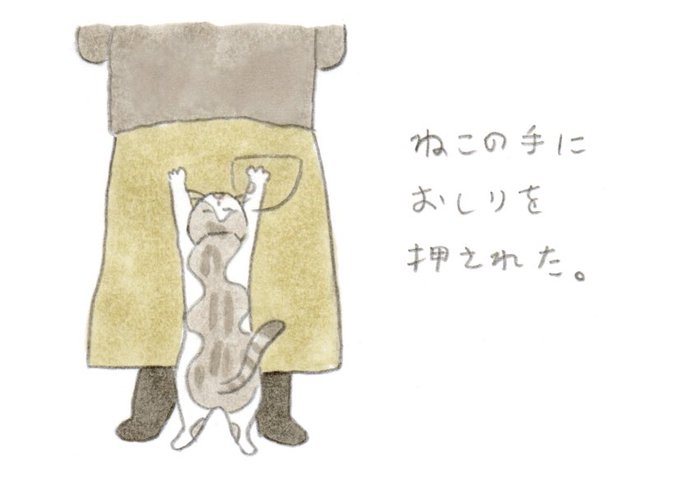 ねこの手に
おしりを
押された。